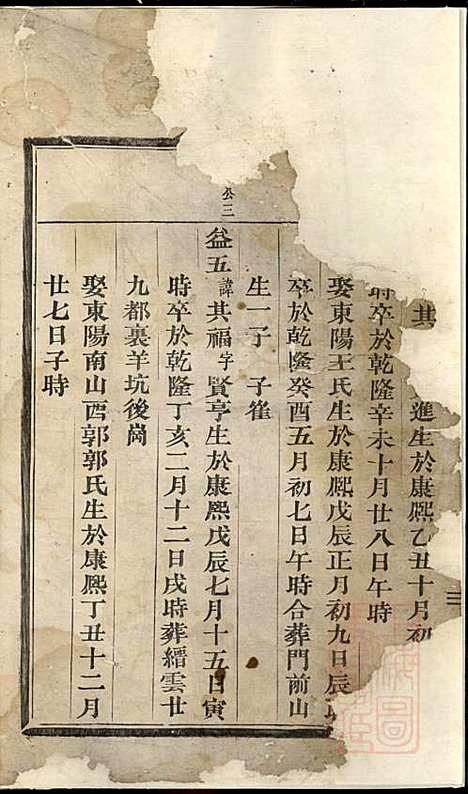 其
進生於康熙乙丑十月初
時卒於乾隆辛未十月廿八日午時
娶東陽王氏生於康熙戊辰正月初九日辰
卒於乾隆癸酉五月初七日午時合葬門前山
生一子 子崔
公三
益五 諱其福 字賢亨生於康熙戊辰七月十五日寅
時卒於乾隆丁亥二月十二日戌時葬縉雲廿
九都裏羊坑後崗
娶東陽南山西郭郭氏生於康熙丁丑十二月
廿七日子時